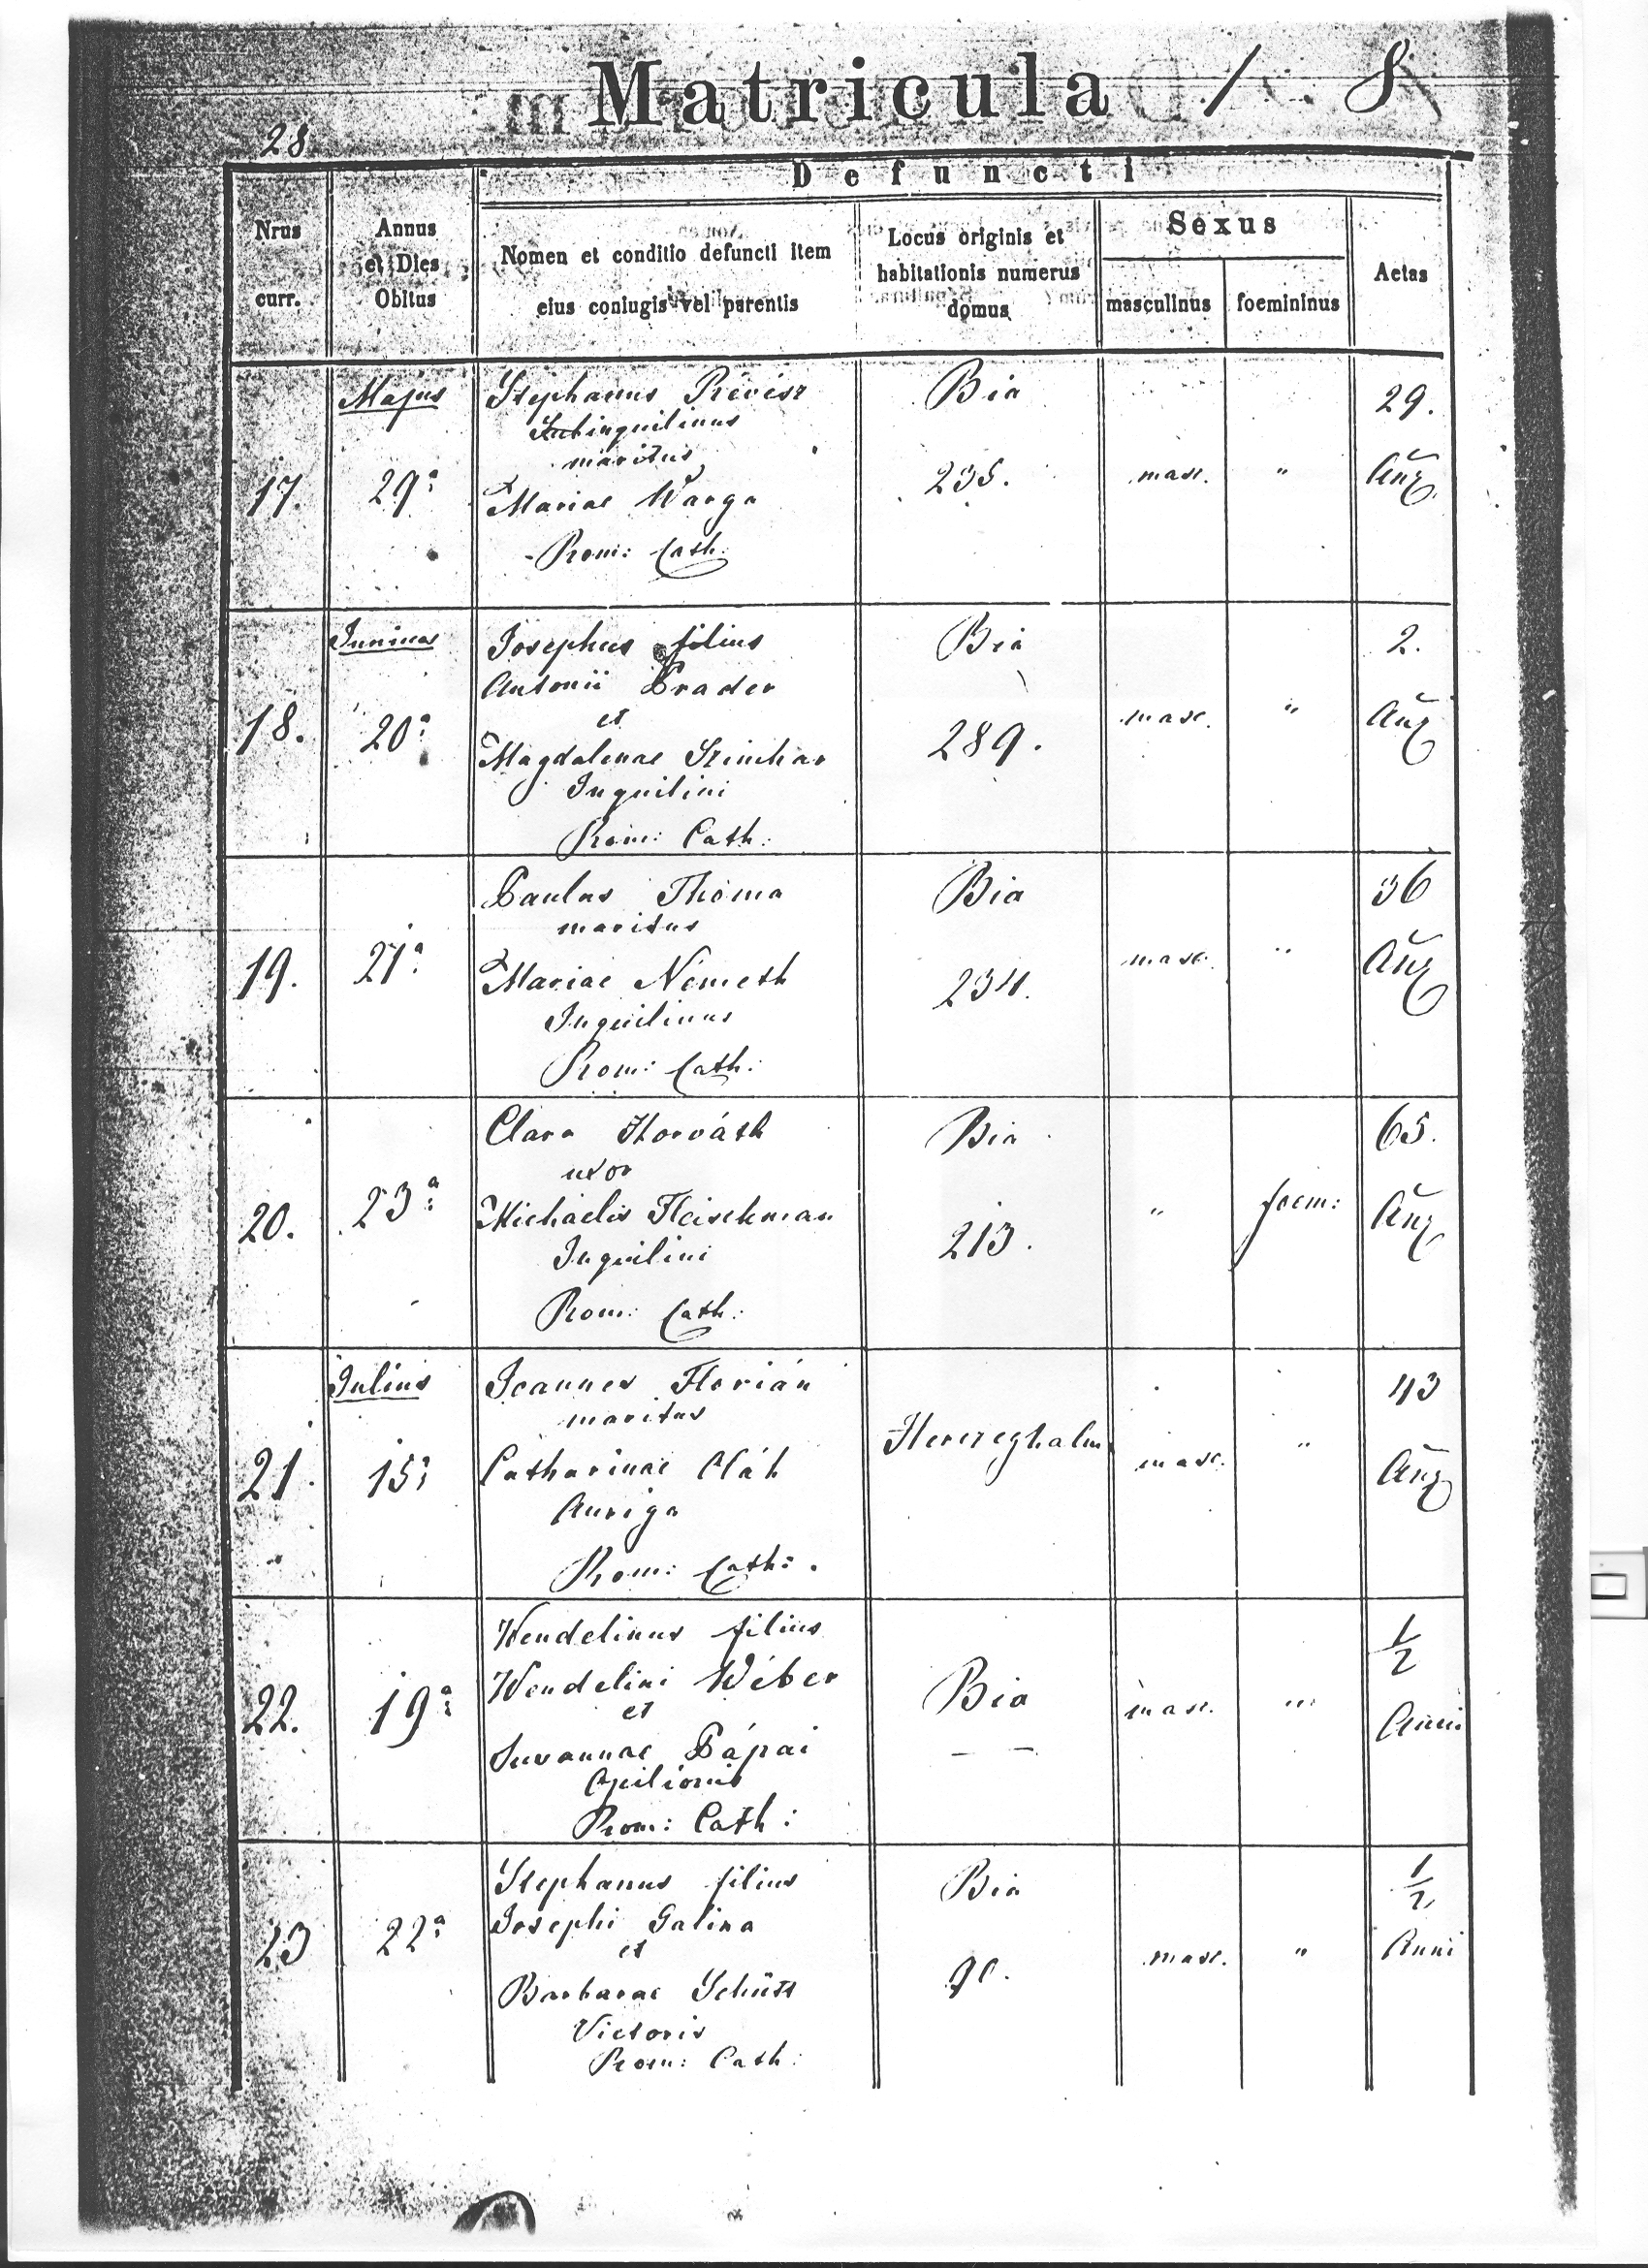 Matricula / 8
28
Defuncti
Nrus curr.
Annus et Dies Obitus
Nomen et conditio defuncti item eius coniugis vel parentis
Locus originis et habitationis numerus domus
Sexus
masculinus
foemininus
Aetas
Majus
Stephanus Révész
Subinquilinus
maritus
17. 29a Mariae Warga
Rom: Cath:
Bia
235.
masc. "
29.
Añ
Junius
Josephus filius
Antonii Prader
et
18. 20a Magdalenae
Inquilini
Rom: Cath:
Bia
289.
masc. "
2.
Añ
Paulus Thoma
maritus
19. 21a Mariae Németh
Inquilinus
Rom: Cath:
Bia
234.
masc. "
36
Añ
Clara Horváth
uxor
20. 23a Michaelis Fleischman
Inquilini
Rom: Cath:
Bia
213.
" foem:
65.
Añ
Julius
Joannes Florián
maritus
21. 15a Catharinae Oláh
Auriga
Rom: Cath:
Herczeghalm
masc. "
43
Añ
Wendelinus filius
Wendelini Wéber
et
22. 19a Susannae Pápai
Opilionis
Rom: Cath:
Bia
— —
masc. "
1/2
Anni
Stephanus filius
Josephi Galina
et
23 22a Barbarae Schütt
Victoris
Rom: Cath:
Bia
90.
masc. "
1/2
Anni